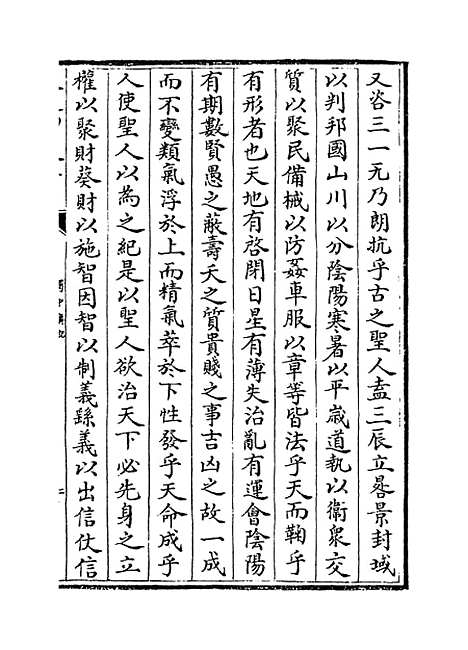 又咨三一无乃朗抗乎古之聖人盍三辰立晷景封域
以判邦國山川以分陰陽寒暑以平歲道執以衛衆交
質以聚民備械以防姦車服以章等皆法乎天而鞠乎
有形者也天地有啓閉日星有薄失治亂有運會陰陽
有期數賢愚之蔽壽夭之質貴賤之事吉凶之故一成
而不變類氣浮於上而精氣萃於下性發乎天命成乎
人使聖人以為之紀是以聖人欲治天下必先身之立
權以聚財葵財以施智因智以制義繇義以出信仗信